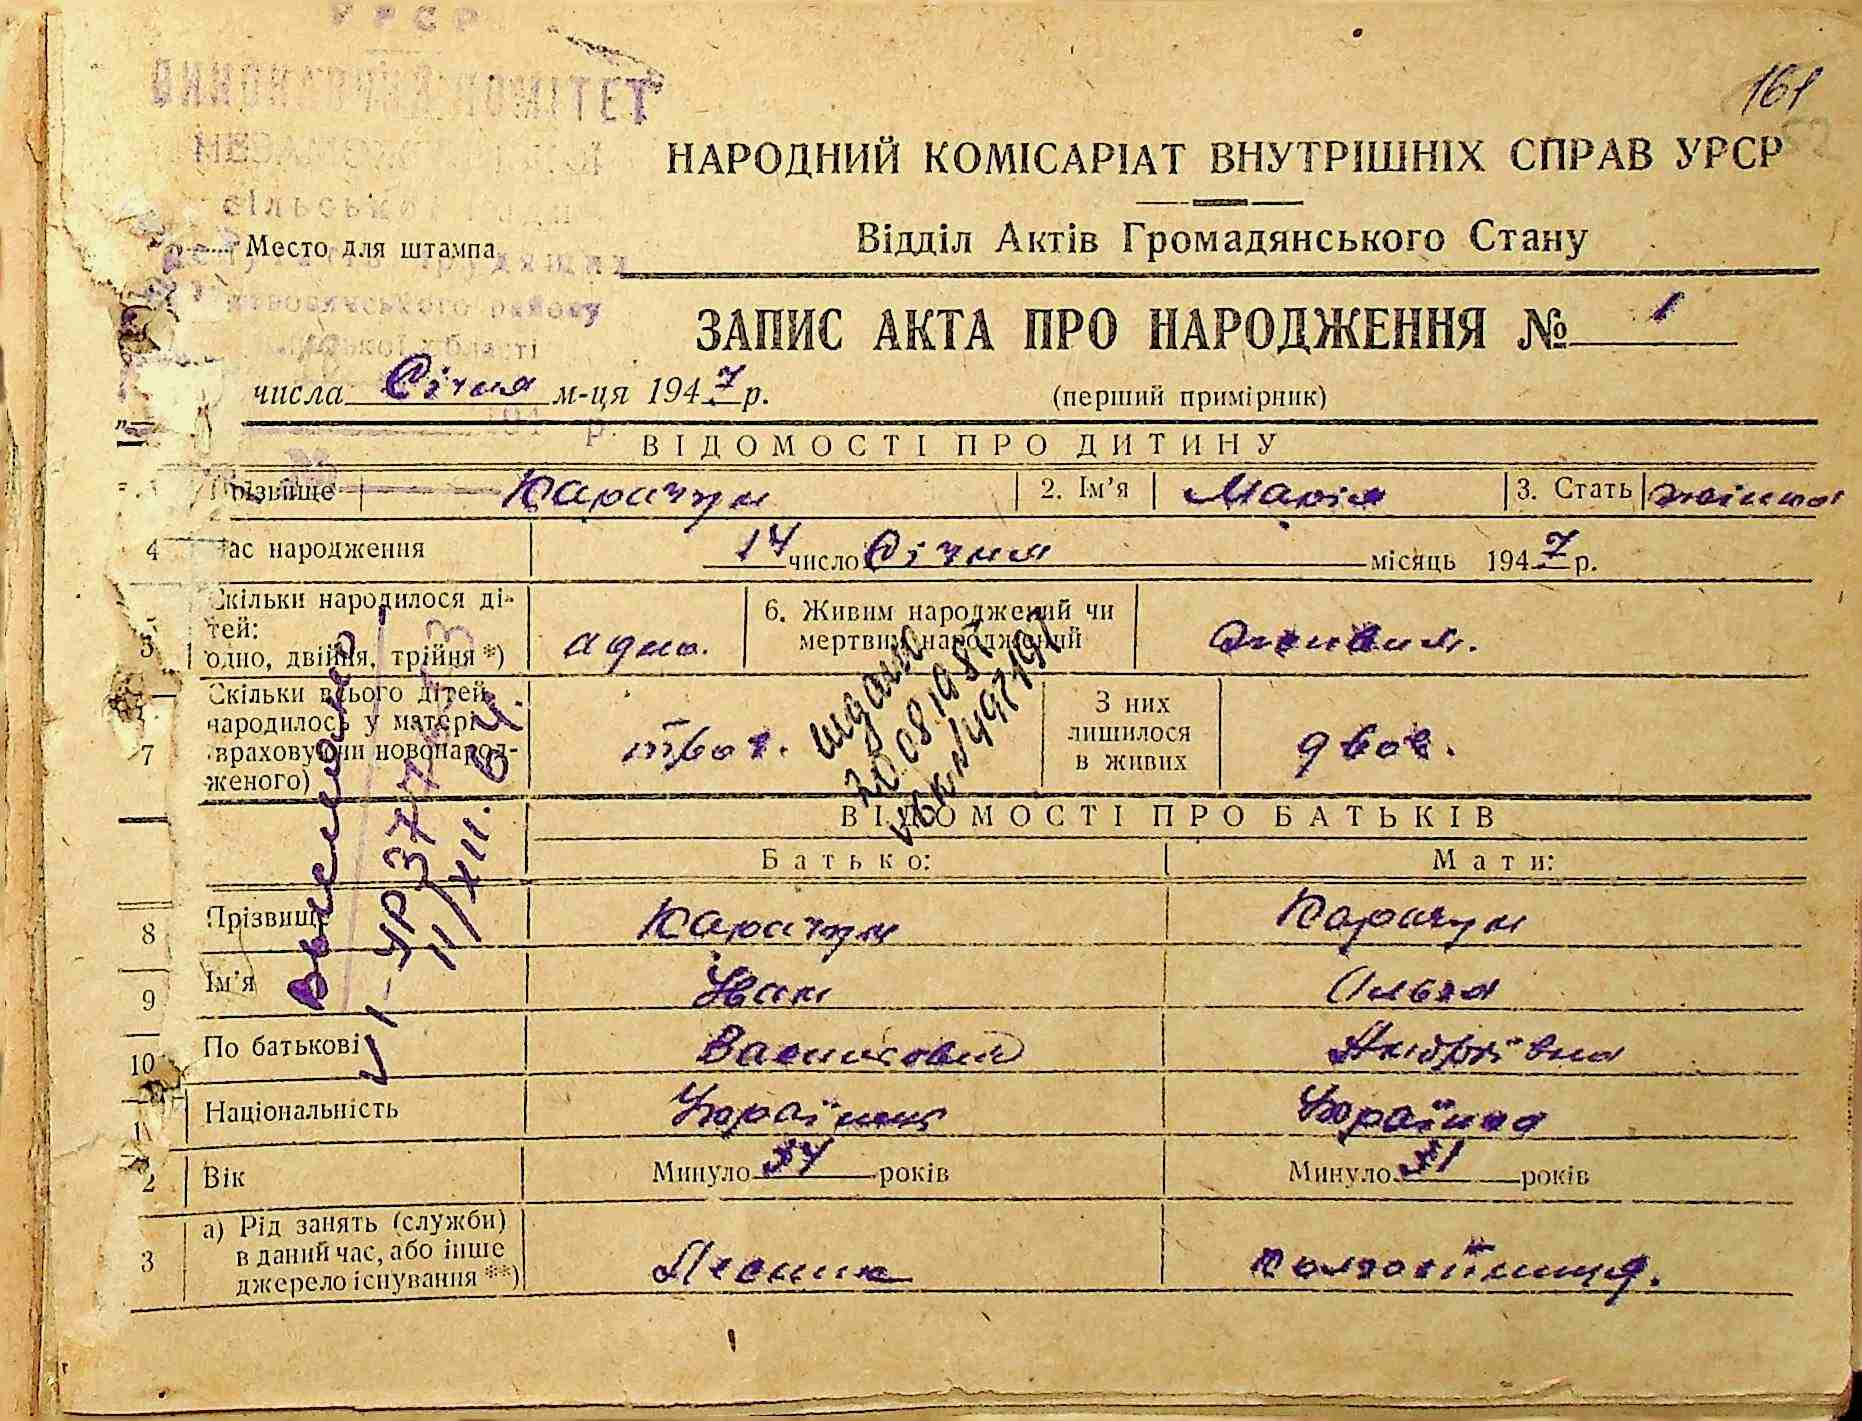 УРСР
161
ВИКОНАВЧИЙ КОМІТЕТ
НАРОДНИЙ КОМІСАРІАТ ВНУТРІШНІХ СПРАВ УРСР
сільської Ради
Відділ Актів Громадянського Стану
Место для штампа
депутатів трудящих
району
області
ЗАПИС АКТА ПРО НАРОДЖЕННЯ № 1
числа Січня м-ця 1947 р.
(перший примірник)
ВІДОМОСТІ ПРО ДИТИНУ
Прізвище Карачун 2. Ім'я Марія 3. Стать жіноча
4 Час народження 14 число Січня місяць 1947 р.
5 Скільки народилося дітей: одно, двійня, трійня *) адно. 6. Живим народжений чи мертвим народжений живим.
7 Скільки всього дітей народилось у матері враховуючи новонародженого) троє. З них лишилося в живих двоє.
видано
20.08.1981
ВІДОМОСТІ ПРО БАТЬКІВ
Батько: Мати:
8 Прізвище Карачун Карачун
9 Ім'я Іван Ольга
10 По батькові Васильович Андріївна
Національність Українець Українка
2 Вік Минуло 34 років Минуло 31 років
3 а) Рід занять (служби) в даний час, або інше джерело існування **) Лесник Колгоспниця.
11/XII. 64.